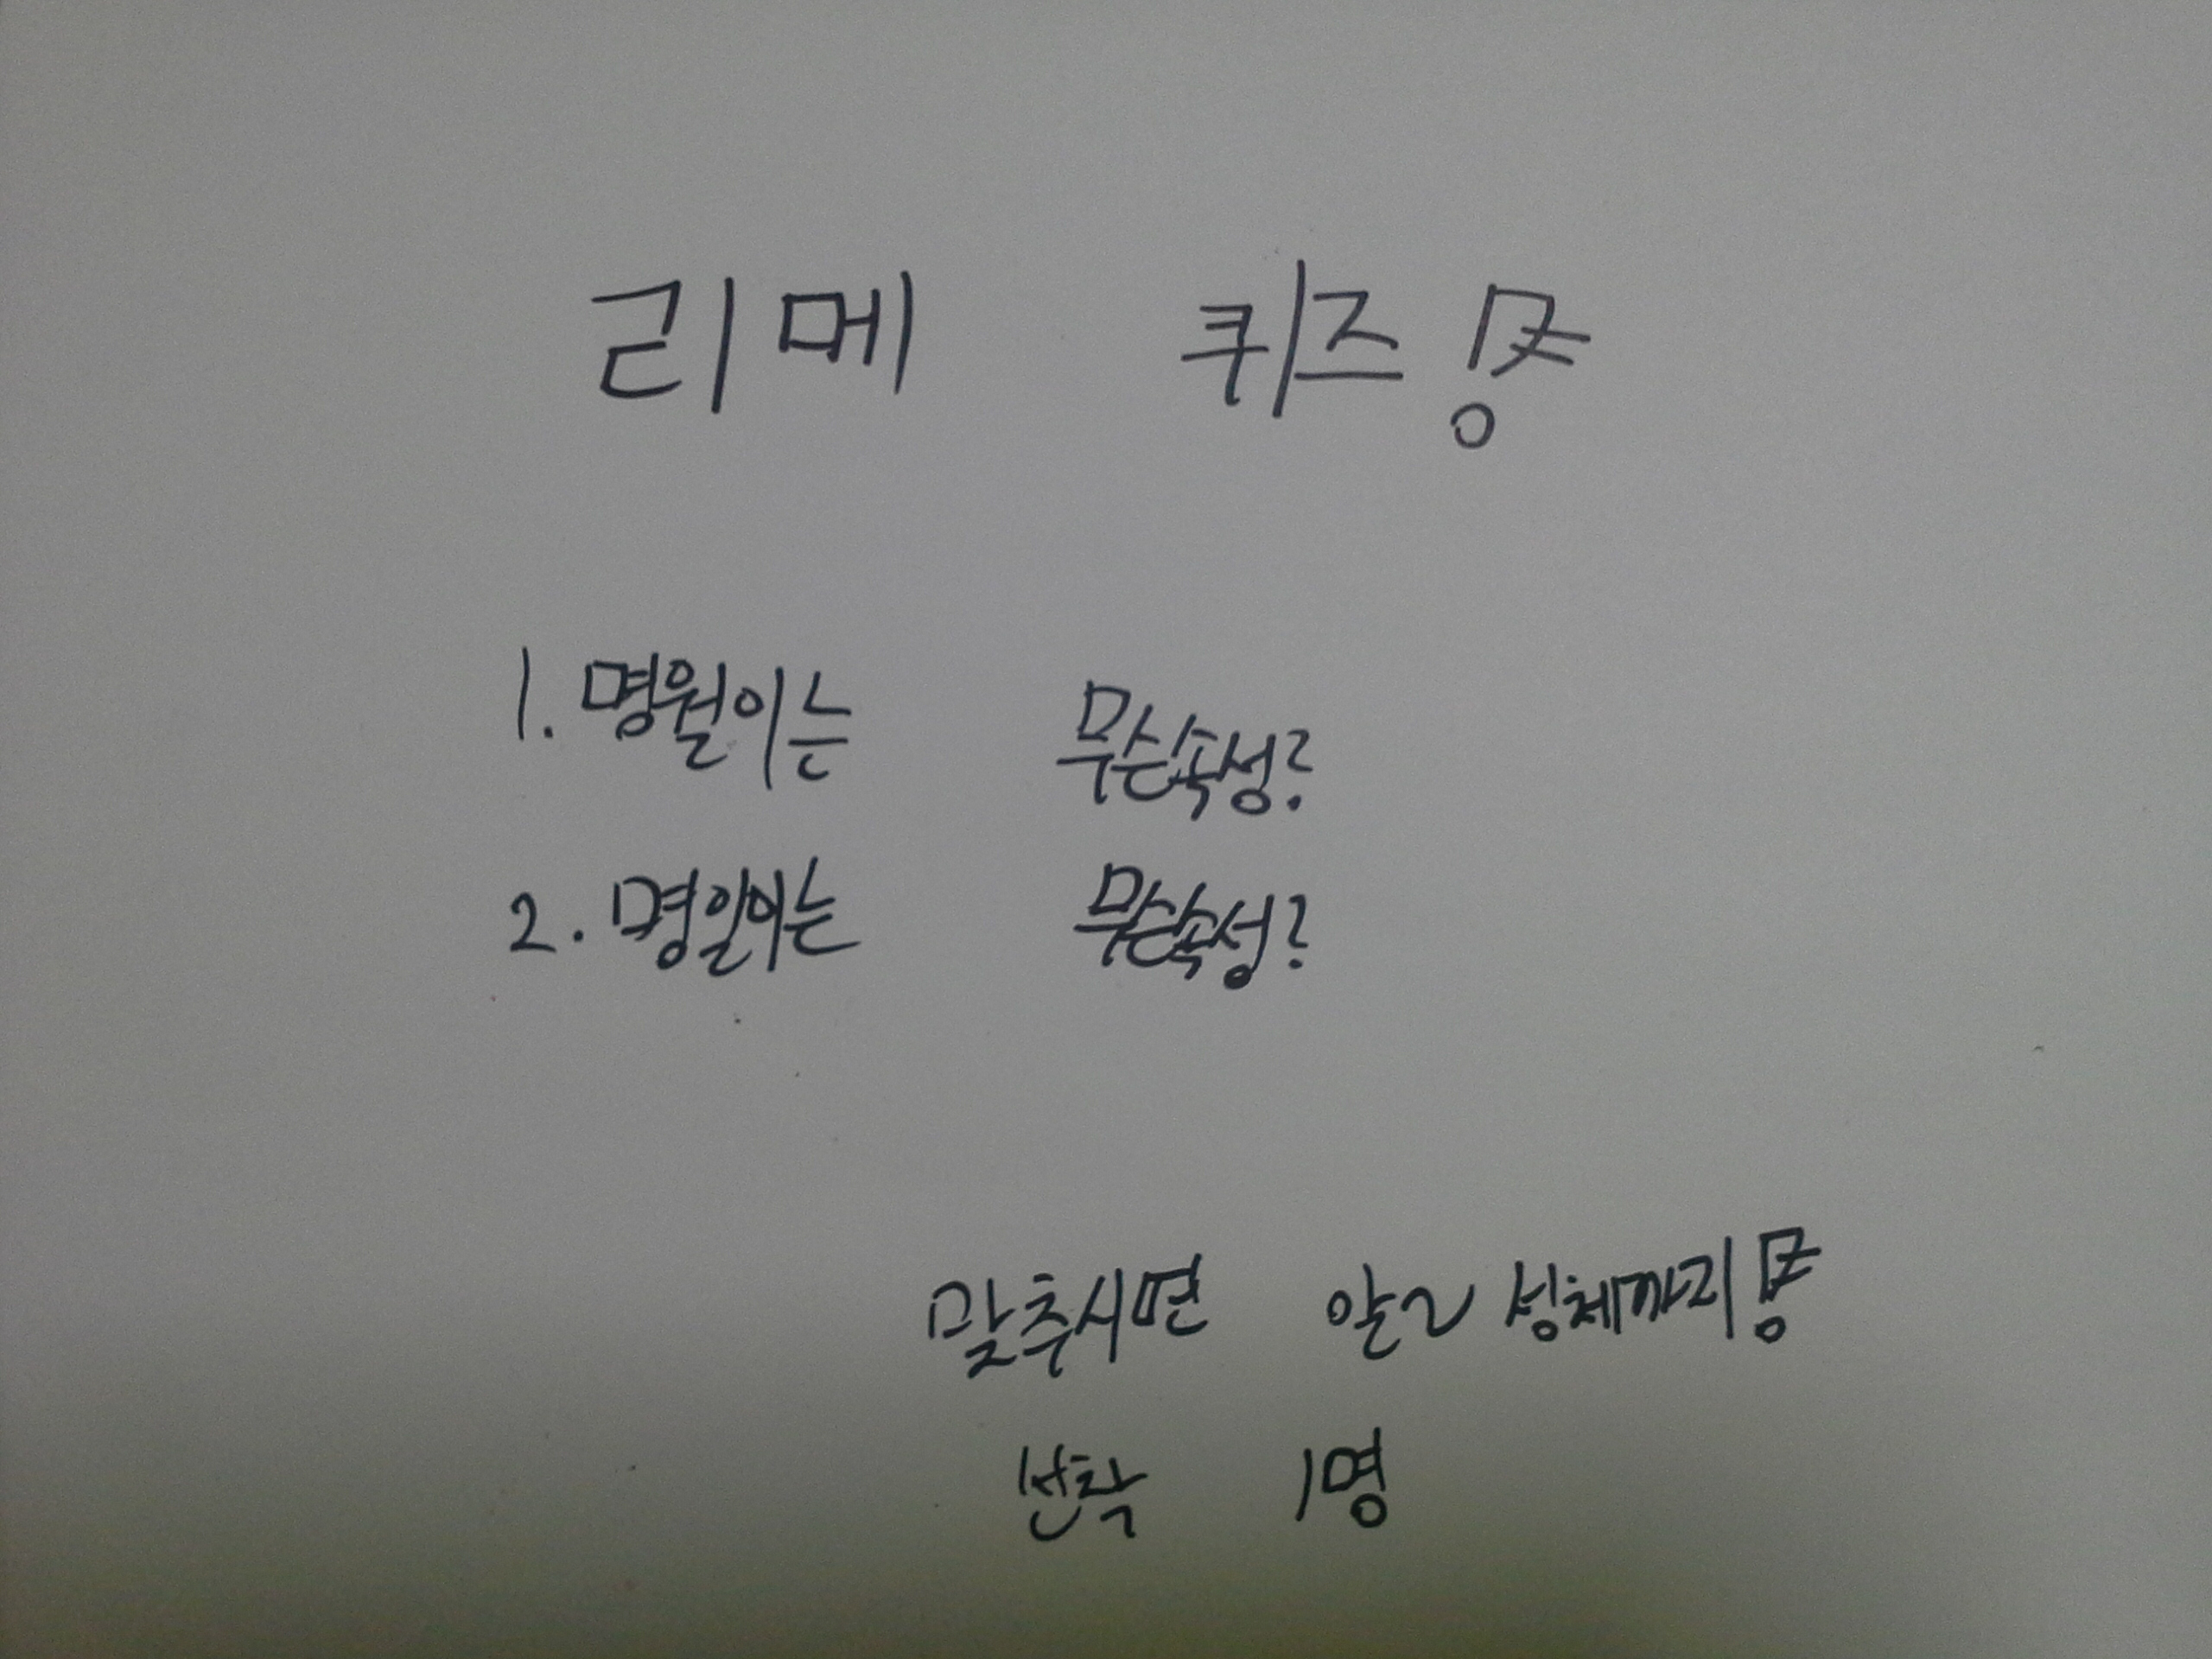 리메 퀴즈 뿅
1. 명월이는 무슨속성?
2. 명일이는 무슨속성?
맞추시면 알~성체까지
선착 1명